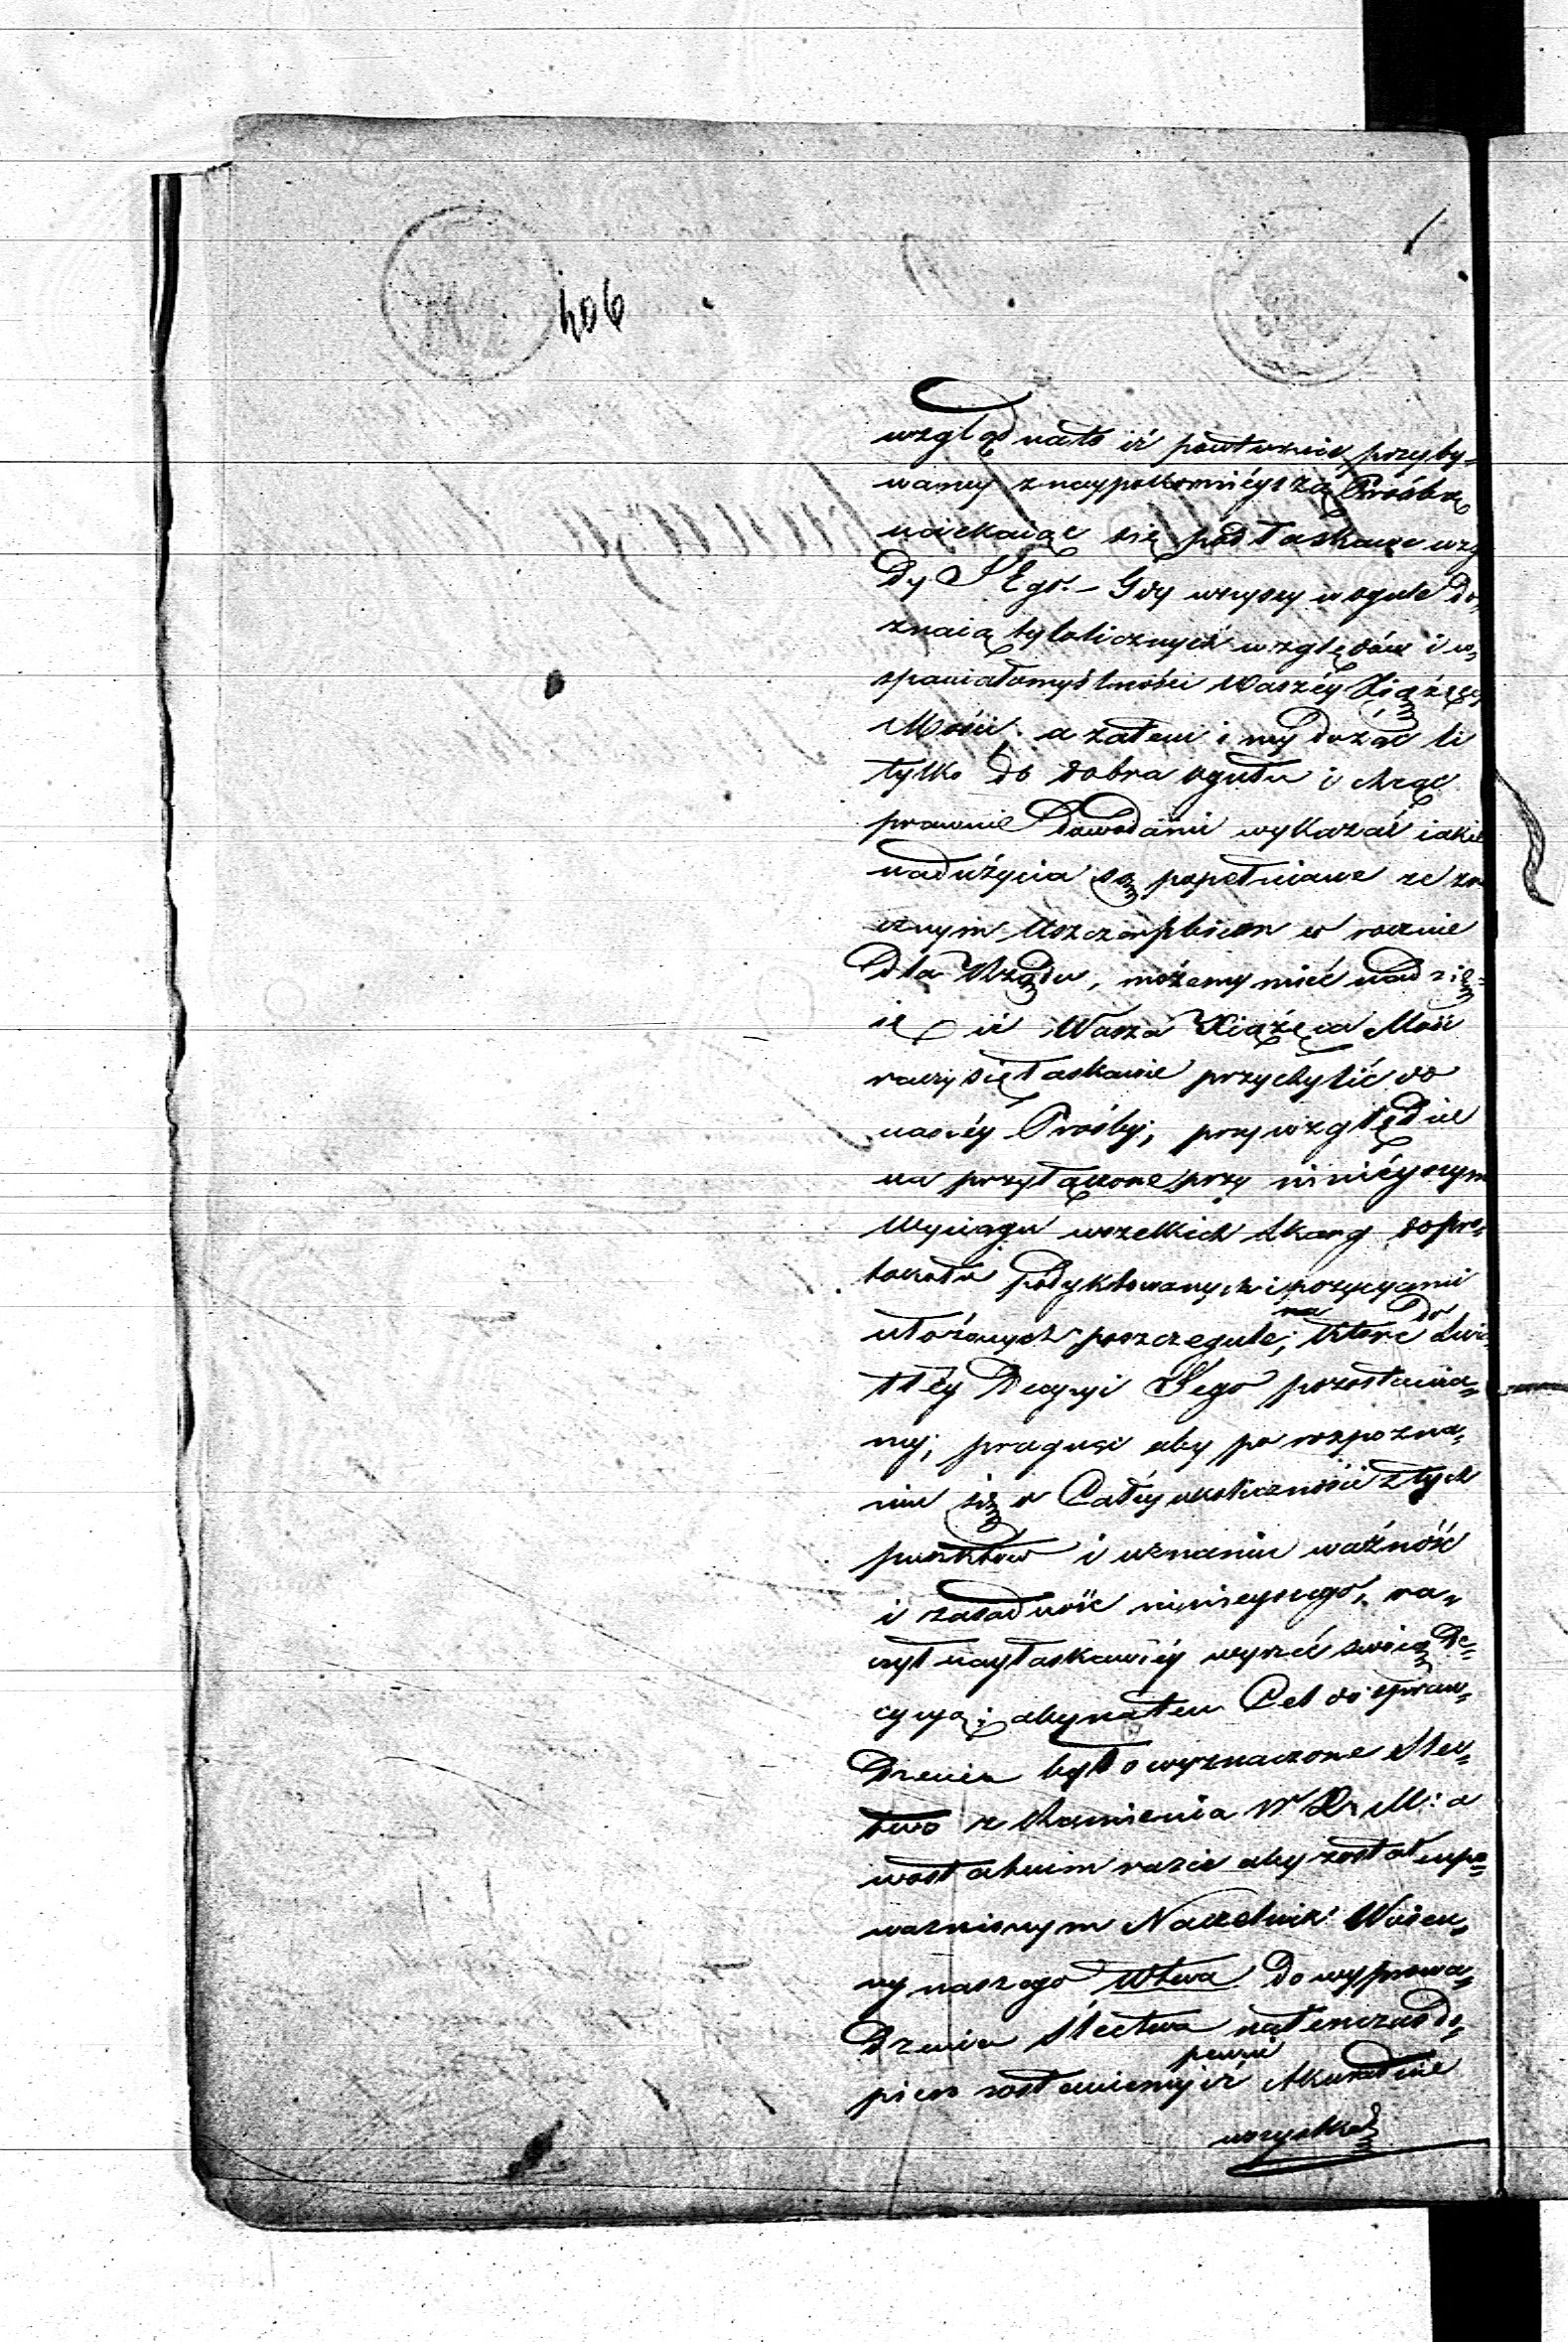 406
wzgląd nato iż powturnie przyby=
wamy z naypokornieyszą Prośbą
uciekaiąc się pod łaskawe wzg
dy JEgo. – Gdy wszyscy w ogule do
znaią tylolicznych względów i w„
spaniałomyślności Waszéy Xiążęcéy
Mości. a zatem i my dożąc li
tylko do dobra ogułu i chcąc
prawnie dowodami wykazać iakie
nadużycia są popełniane ze zn
cznym Uszczerpkiem w rocznie
dla Urzędu, możemy mieć nadzie=
ię iż Wasza Xiążęca Mość
raczy się łaskawie przychylić do
naszéy Prośby; przy względzie
na przyłączone przy ninieyszym
Wyciągu wszelkich skarg dopro„
tokołu podyktowanych i pozycyami
ułożonych poszczegule; na które do świa
tłéy Decyzyi Jego pozostawia„
my; pragnąc aby po rozpozna„
niu się o Całéy okoliczności z tych
punktów i uznaniu ważność
i zasadność ninieyszego, ra„
czył nayłaskawiéy wyrzéc swoią De=
cyzyą; aby na ten Cel do spraw„
dzenia było wyznaczone Sled„
two z Ramienia W X. M: a
w ostatnim razie aby został upo=
ważnionym Naczelnik Woien„
ny naszego Ptwa do wyprowa„
dzenia Sledtwa natenczas do„
piero zostaniemy pewni iż Akuratnie
wszystko